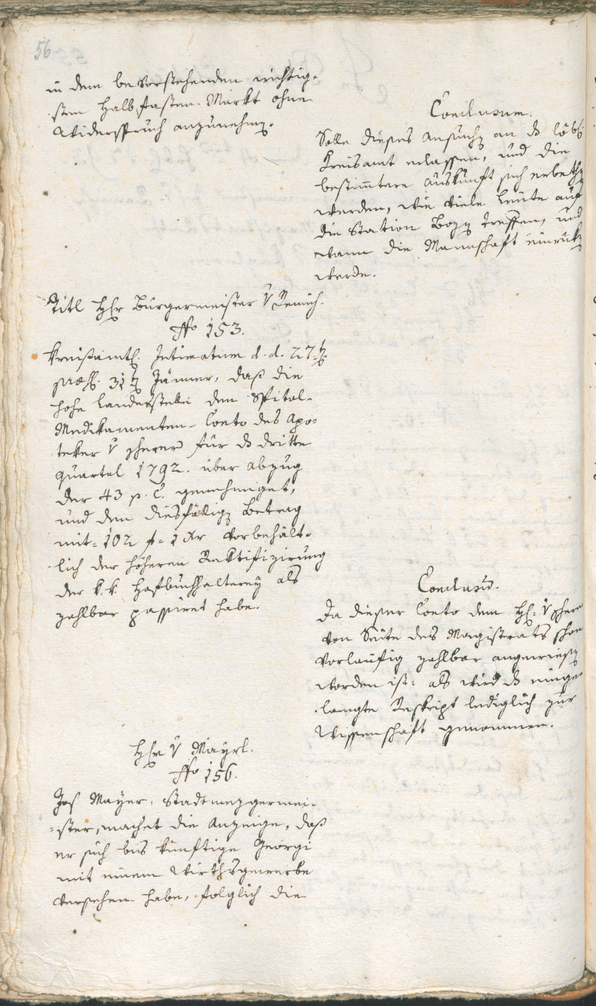 56
in dem bevorstehenden wichtig-
sten Halbfasten-Markt ohne
Widerspruch anzunehmen.
Conclusum.
Solle dieses Ansuchen an d löbl.
Kreisamt erlassen, und die
bestimmtere Auskunft sich erbethen
werden, wie viele Leute auf
die Station Bozen treffen, und
wann die Mannschaft einrücken
werde.
Titl Hr Bürgermeister v
No 153.
Kreisämtl. Intimatum d. d. 27ten
praes. 31ten Jänner, daß die
hohe Landesstelle den Spital-
Medikamenten-Conto des Apo-
teker v für d dritte
Quartal 1792. über Abzug
der 43 p. C. genehmiget,
und den diesfälligen Betrag
mit 102 f 1 xr vorbehält-
lich der höheren Rektifizierung
der k. k. Hofbuchhalterey als
zahlbar passiret habe.
Conclusum.
Da dieser Conto dem H. v
von Seite des Magistrats schon
vorläufig zahlbar angewiesen
worden ist: als wird d einge-
langte Reskript lediglich zur
Wissenschaft genommen.
Hr v Mayrl.
No 156.
Jos Mayer, Stadtmezgermei-
ster, machet die Anzeige, daß
er sich bis künftige Georgi
mit einem Wirthsgewerbe
versehen habe, folglich die